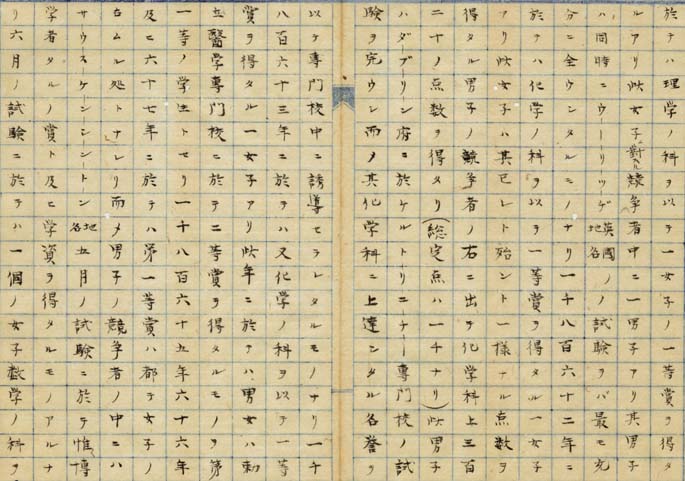 於テハ理学ノ科ヲ以テ一女子ノ一等賞ヲ得タ
ルアリ此女子ニ對スル競争者中ニ一男子アリ其男子
ハ同時ニウーリッゲ英國ノ地名ノ試験ヲバ最モ充
分ニ全ウシタルモノナリ一千八百六十二年ニ
於テハ化学ノ科ヲ以テ一等賞ヲ得タル一女子
アリ此女子ハ其已レト始ント一様ナル点数ヲ
得タル男子ノ競争者ノ右ニ出デ化学科上三百
二十ノ点数ヲ得タリ(総定点ハ一千ナリ)此男子
ハダーブーリン府ニ於ケルトリニチー專門校ノ試
験ヲ完ウシ而メ其化学科ニ上達シタル名誉ヲ
以テ専門校中ニ誘導セラレタルモノナリ一千
八百六十三年ニ於テハ又化学ノ科ヲ以テ一等
賞ヲ得タル一女子アリ此年ニ於テハ男女ハ勅
立醫学專門校ニ於テ二等賞ヲ得タルモノヲ第
一等ノ学生トセリ一千八百六十五年六十六年
及ヒ六十七年ニ於テハ第一等賞ハ都テ女子ノ
占ムル処トナレリ而メ男子ノ競争者ノ中ニハ
サウスケーンシントーン地名五月ノ試験ニ於テ惟博
学者タルノ賞ト及ヒ学資ヲ得タルモノアルナ
リ六月ノ試験ニ於テハ一個ノ女子数学ノ科ヲ